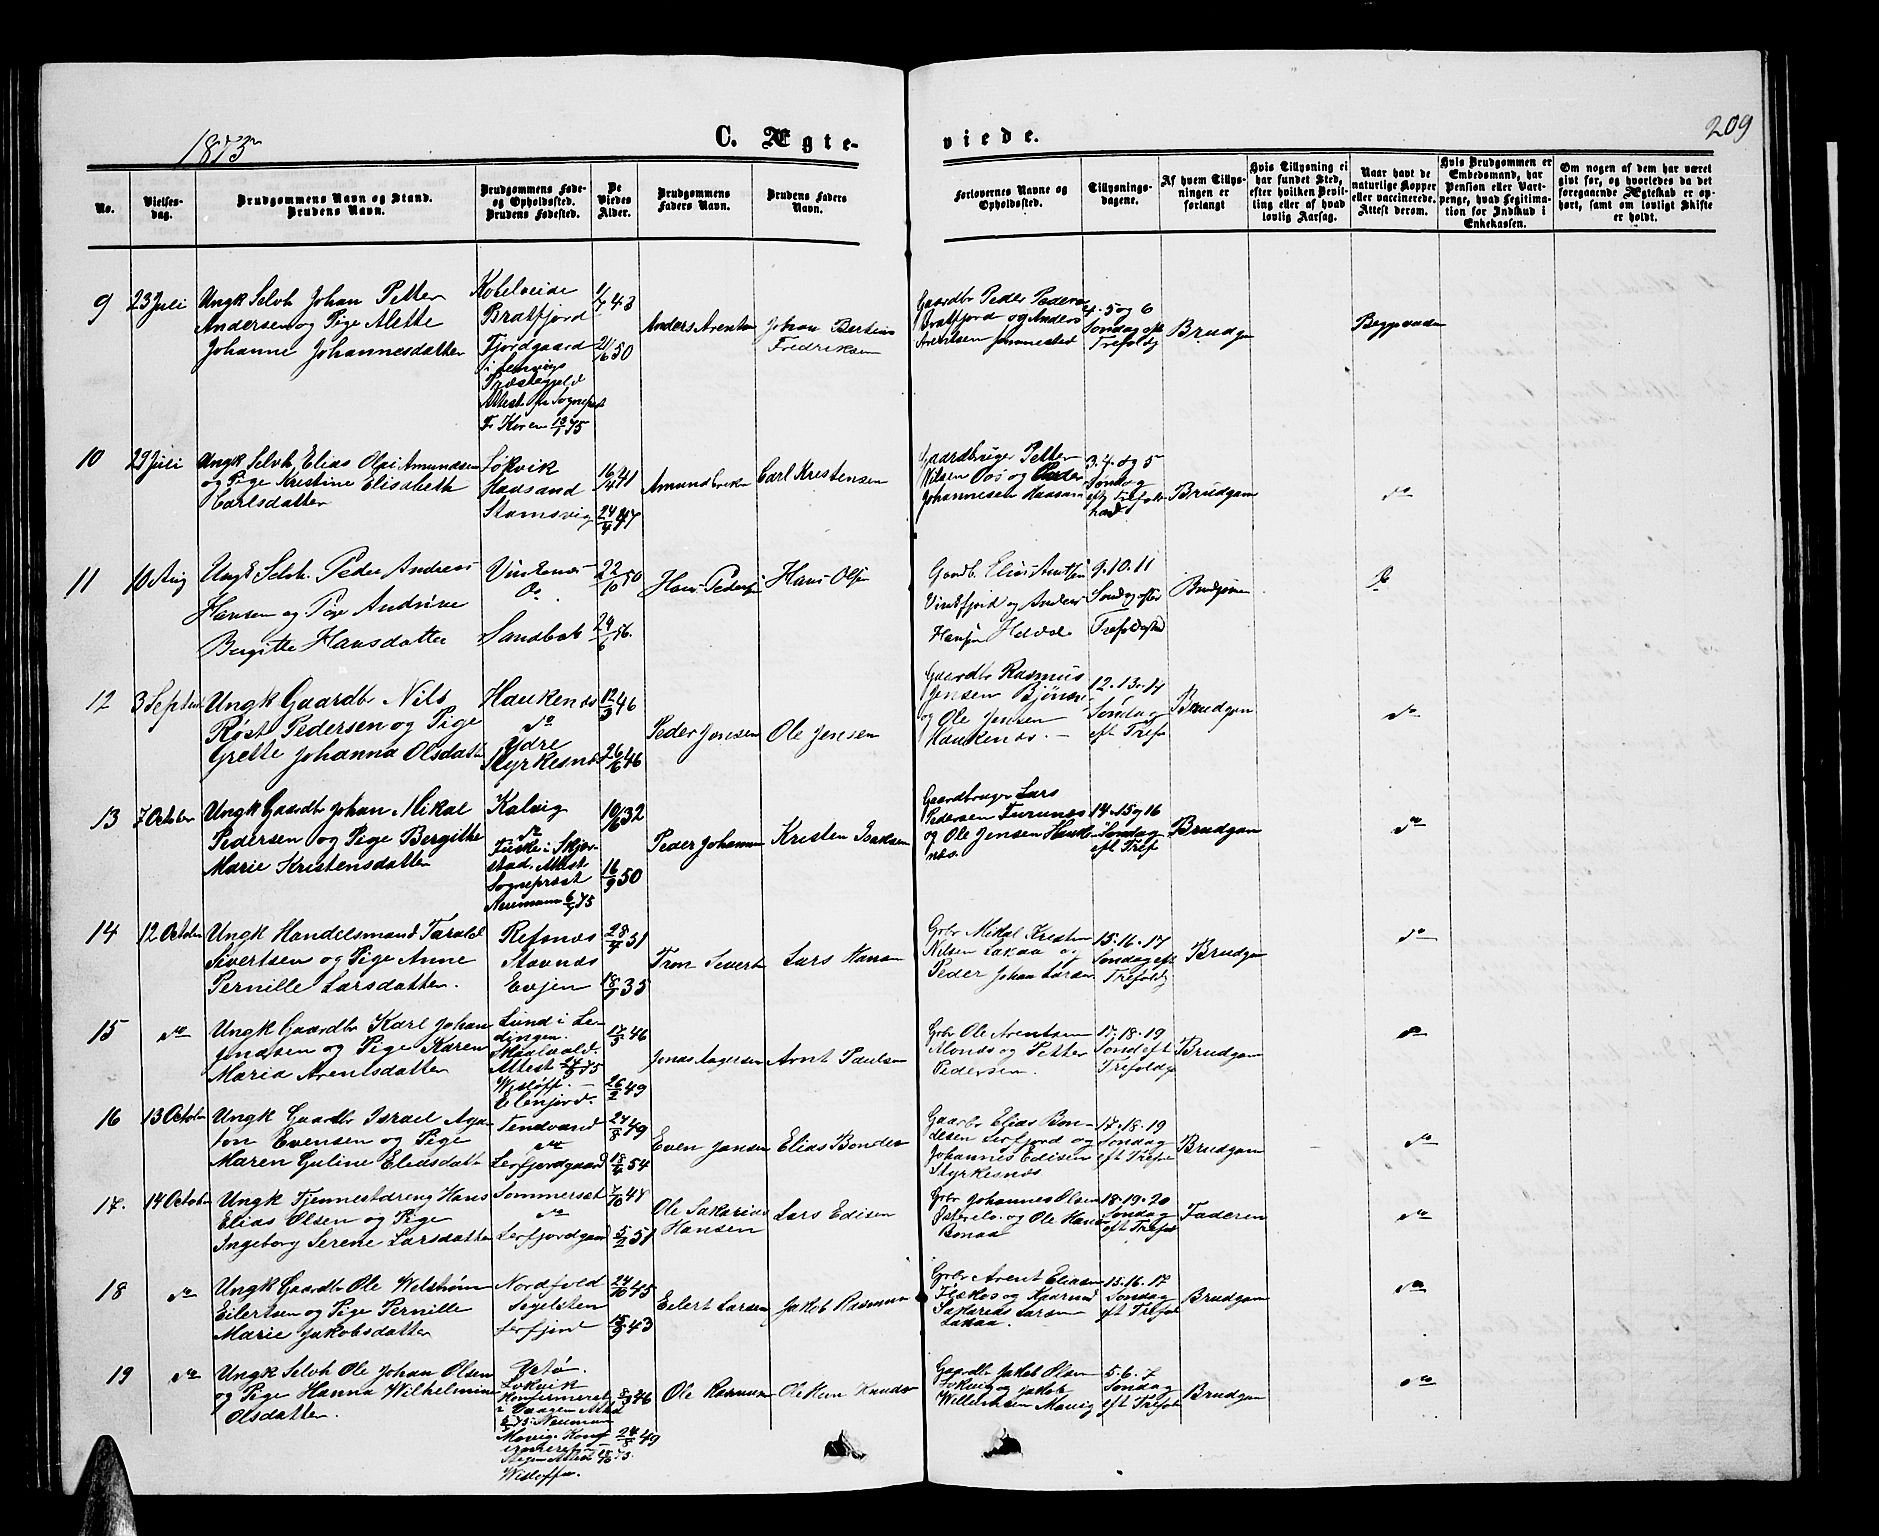 1875
C. Ægte-
viede.
209
No.
Vielses-
dag.
Brudgommens Navn og Stand.
Brudens Navn.
Brudgommens Føde-
og Opholdssted.
Brudens Fødested.
De
Viedes
Alder.
Brudgommens
Faders Navn.
Brudens Faders
Navn.
Forlovernes Navne og
Opholdssted.
Tillysnings-
dagene.
Af hvem Tillys-
ningen er
forlangt
Hvis Tillysning ei
har fundet Sted,
efter hvilken Bevil-
ling eller af hvad
lovlig Aarsag.
Naar havt de
naturlige Kopper
eller vaccinerede.
Attest derom.
Hvis Brudgommen er
Embedsmand, har
Pension eller Vart-
penge, hvad Legitima-
tion for Indskud i
Enkekassen.
Om nogen af dem har været
givt før, og hvorledes da det
foregaaende Ægteskab er op-
hørt, samt om lovligt Skifte
er holdt.
9
23 Juli
Ungk Selvh Johan Petter
Andersen og Pige Alette
Johanne Johannesdatter
Kobelveide
Bratfjord
Fjordgaard
i Lenvigs
Præstegjeld
Attest fra Sognepst
Fr Koren 13/7 75
1/7 43
21/6 50
Anders Arentsen
Johan Bertius
Fredriksen
Gaardbr Peder Peders
Bratfjord og Anders
Arentsen Jennestad
4. 5 og 6
Søndag eft
Trefoldg
Brudgm
Begge vaccin
10
29 Juli
Ungk Selvh Elias Olai Amundsen
og Pige Kristine Elisabeth
Carlsdatter
Løkvik
Hadsand
Stamsvig
16/4 41
24/4 47
Amund Eriks
Carl Kristensen
Gaardbruger Petter
Nilsen Vas og Peder
Johannesen Haasan
3. 4. og 5
Søndag
eftr Trefol
hed
Brudgom
do
11
10 Aug
Ungk Selvh. Peder Andreas
Hansen og Pige Andrine
Bergitte Hansdatter
Vinkenes
Do
Sandbak
22/10 50
24/6 56.
Hans Peders
Hans Olsen
Gaardb. Elias Arntsen
Vinkfjord og Anders
Hansen Helvde
9. 10. 11
Sondag efter
Trefoldighed
Brudgom
Do
12
3 Septem
Ungk Gaardbr Nils
Røst Pedersen og Pige
Grette Johanna Olsdatt
Haukenæs
do
Ydre
Styrkesnæs
12/3 46
26/6 46
Peder Jensen
Ole Jensen
Gaardbr Rasmus
Jensen Bjønsn
og Ole Jensen
Haukenæs.
12. 13. 14
Søndag
eft Tref
Brudgom
do
13
7 October
Ungk Gaardb Johan Mikal
Pedersen og Pige Bergithe
Marie Kristensdatter
Kalvig
do
Fuske i Skjer-
stad. Attest
Sogneprest
Neumann 6/9 75
10/6 32
16/9 50
Peder Johannes
Kristen Isaksen
Gaardbruger Lars
Pedersen Furunes
og Ole Jensen Hauke
næs.
14. 15 og 16
Søndag
eft Tref
Brudgom
do
14
12 Octobr
Ungk Handelsmand Tarald
Sivertsen og Pige Anne
Pernille Larsdatter.
Refsnæs
Stavnæs
Evjen
28/4 51
18/7 35
Tron Sivert
Lars Hans
Grbr Mikal Kristen
Nilsen Lakaa og
Peder Johan Larsen
15. 16. 17
Søndag eft
Trefoldg
Brudgm
do
15
do
Ungk Gaardbr Karl Johan
Jonassen og Pige Karen
Maria Arentsdatter
Lund i Le-
dingen.
Attest 24/9 75
Wisløff.
Elenjord.
17/5 46
26/2 49
Jonas Aagesen
Arnt Paulsen
Grbr Ole Arentsen
og Petter
Pedersen.
17. 18. 19
Sønd eft
Trefoldg
Brudgom
do
16
13 Octobr
Ungk Gaardbr Israel Aga-
ton Evensen og Pige
Maren Guline Eliasdatt
Tendvand
do
Lerfjordgaard
27/8 49
18/4 54
Even Jensen
Elias Bendes
Gaarbr Elias Ben-
desen Lerfjord og
Johannes Edisen
Styrkesnæs
17. 18. 19
Søndag
eft Trefo
Brudgom
do
17.
14 October
Ungk Tjenestdreng Hans
Elias Olsen og Pige
Ingeborg Serene Larsdatter
Sommerset
do
Lerfjordgaard
7/10 47
5/2 51
Ole Sakarias
Hansen
Lars Edisen
Grbr Johannes Olsen
og Ole Hans
Bonaa
18. 19. 20
Søndag
eft Trefol
Faderen
do
18
do
Ungk Gaardbr Ole Welstrøm
Eilertsen og Pige Pernille
Marie Jakobsdatter
Nordfold
Segelsten
Lerfjord
24/10 45
43
Eilert Larsen
Jakob Rasmus
Grbr Arent Eliasen
og
Sakarias Larsen
Lakaa.
15. 16. 17
Søndag
eft Trefol
Brudgom
do
19
do
Ungk Selvh Ole Johan Olsen
og Pige Hanna Wilhelmine
Olsdatter.
Løkvik
Konfirmeret
i Vaagen Attest
75. Neumann
Movig. Konf
Wisløffn.
8/3 46
24/8 49
Ole Rasmus
Ole Knuds
Gaardbr Jakob Olsen
Løkvig og Jakob
Willumsen Movig
5. 6. 7
Søndag
eft Trefol
Brudgom
do